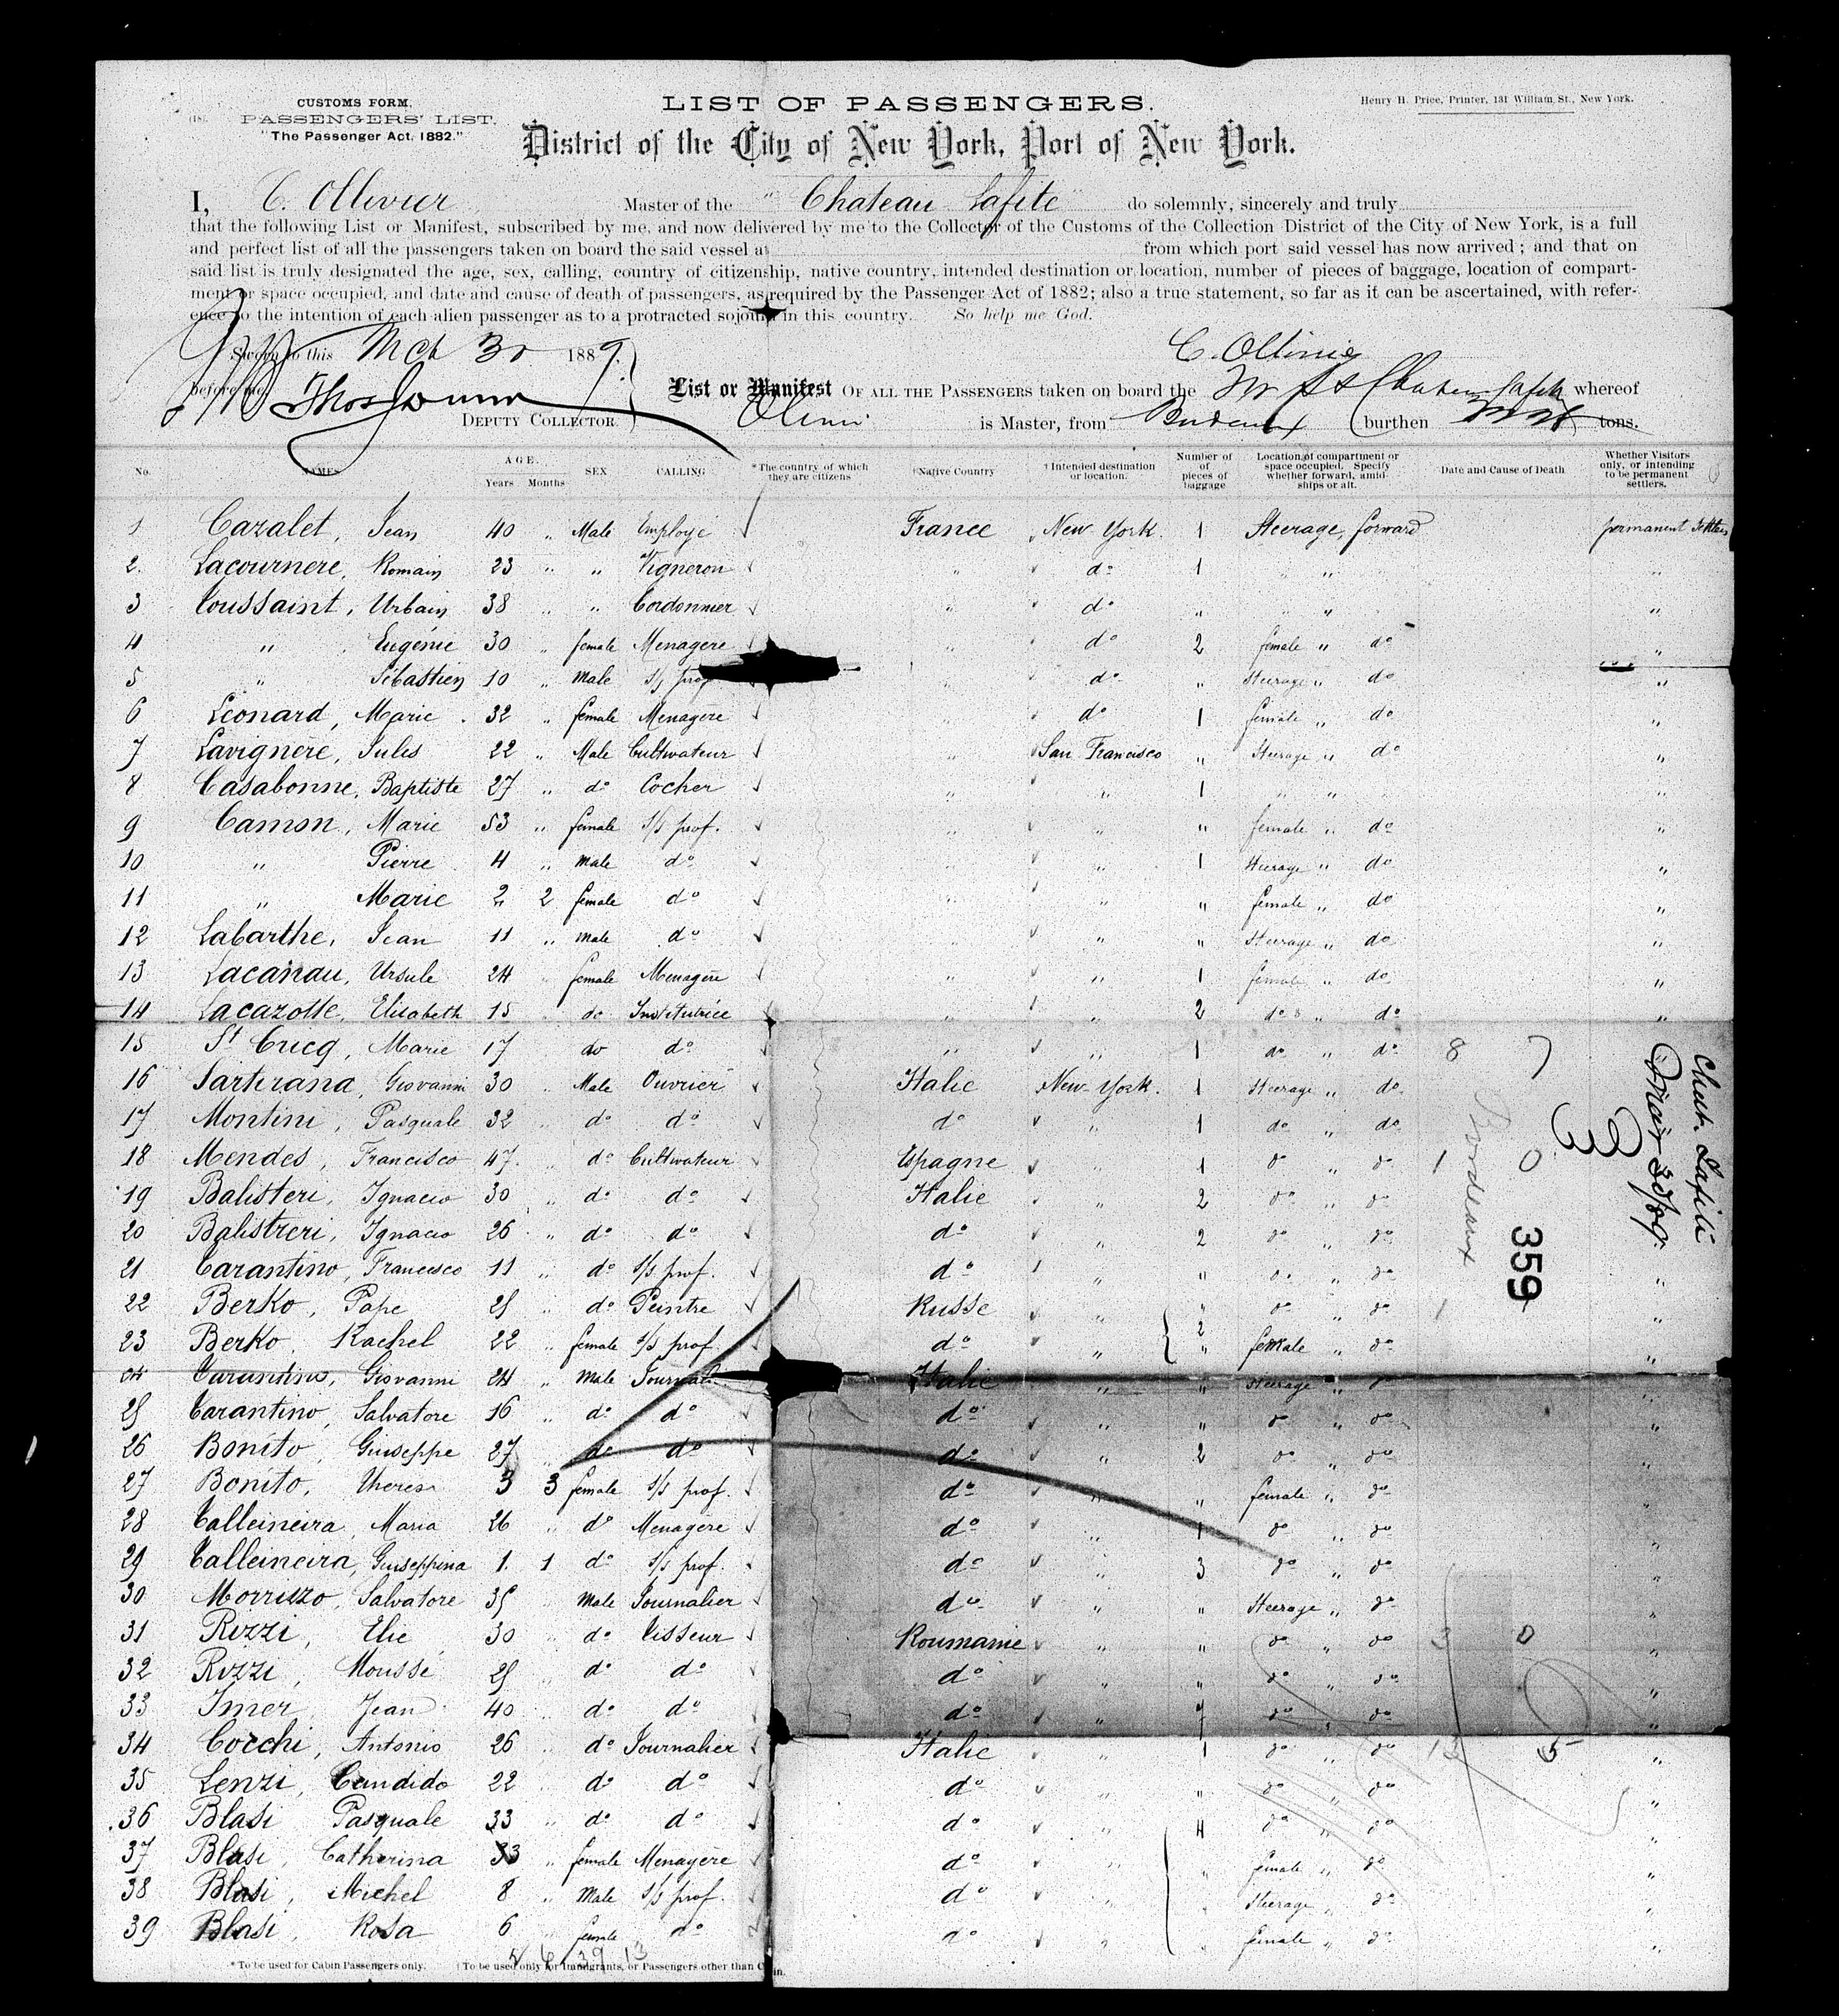 CUSTOMS FORM.
PASSENGERS' LIST.
"The Passenger Act, 1882."
LIST OF PASSENGERS.
Henry H. Price, Printer, 131 William St., New York.
District of the City of New York, Port of New York.
I, C. Ollivier Master of the "Chateau Lafite" do solemnly, sincerely and truly
that the following List or Manifest, subscribed by me, and now delivered by me to the Collector of the Customs of the Collection District of the City of New York, is a full
and perfect list of all the passengers taken on board the said vessel at from which port said vessel has now arrived; and that on
said list is truly designated the age, sex, calling, country of citizenship, native country, intended destination or location, number of pieces of baggage, location of compart-
ment or space occupied, and date and cause of death of passengers, as required by the Passenger Act of 1882; also a true statement, so far as it can be ascertained, with refer-
ence to the intention of each alien passenger as to a protracted sojourn in this country. So help me God.
Sworn to this Mch 30 1889. C. Ollivier
before me Thos
DEPUTY COLLECTOR.
List or Manifest OF ALL THE PASSENGERS taken on board the Fr SS Chateau Lafite whereof
is Master, from Bordeaux burthen tons.
No. NAMES AGE. Years Months SEX CALLING *The country of which they are citizens †Native Country †Intended destination or location. Number of pieces of baggage Location of compartment or space occupied. Specify whether forward, amidships or aft. Date and Cause of Death Whether Visitors only, or intending to be permanent settlers.
1 Cazalet, Jean 40 " Male Employé France New York. 1 Steerage, forward permanent Settlers
2. Lacournere, Romain 23 " " Vigneron " do 1 " " "
3 Toussaint, Urbain 38 " " Cordonnier " do " " " "
4 " Eugénie 30 " female Menagere " do 2 female " do "
5 " Sébastien 10 " Male s/s prof " do " Steerage " do "
6 Leonard, Marie. 32 " female Menagere " do 1 female " do "
7 Lavignere, Jules 22 " Male Cultivateur " San Francisco " Steerage " do "
8 Casabonne, Baptiste 27 " do Cocher " " 1 " " "
9 Camon, Marie 53 " female s/s prof. " " " female " do "
10 " Pierre 4 " male do " " 1 Steerage " do "
11 " Marie 2 2 female do " " " female " do "
12 Labarthe, Jean 11 " male do " " " Steerage " do "
13 Lacanau, Ursule 24 " female Menagère " " 1 female " do "
14 Lacazotte, Elisabeth 15 " do Institutrice " " 2 do " do "
15 St Cricq, Marie 17 do do " " 1 do " do 8 7
16 Sartirana, Giovanni 30 " Male Ouvrier Italie New York. 1 Steerage " do
17 Montini, Pasquale 32 " do do do " 1 do " do
18 Mendes, Francisco 47. " do Cultivateur Espagne " 1 do " do 1 0
19 Balisteri, Ignacio 30 " do do Italie " 2 do " do
20 Balistreri, Ignacio 26 " do do do " 2 do " do
21 Carantino, Francesco 11 " do s/s prof. do " " do " do "
22 Berko, Pape 25 " do Peintre Russe " " do " do 1 "
23 Berko, Rachel 22 " female s/s prof. do " 2 " female " do "
24 Carantino, Giovanni 24 " Male Journal. Italie " " Steerage " do "
25 Carantino, Salvatore 16 " do do do " " do " do "
26 Bonito, Giuseppe 27 " do do do " 2 do " do "
27 Bonito, Theresa 3 3 female s/s prof. do " " female " do "
28 Talleineira, Maria 26 " do Menagere do " 1 do " do "
29 Talleineira, Giuseppina 1. 1 do s/s prof. do " 3 do " do "
30 Morrizzo, Salvatore 35 " Male Journalier do " " Steerage " do "
31 Rizzi, Elie 30 " do Tisseur Roumanie " " do " do 3 0 "
32 Rizzi, Moussé 25 " do do do " " do " do "
33 Imer, Jean 40 " do do do " " do " do "
34 Cocchi, Antonio 26 " do Journalier Italie " 1 do " do 13 5 "
35 Lenzi, Candido 22 " do do do " " do " do "
36 Blasi Pasquale 33 " do do do " 4 do " do "
37 Blasi, Catherina 33 " female Menagère do " " female " do "
38 Blasi, Michel 8 " Male s/s prof. do " " Steerage " do "
39 Blasi, Rosa 6 " female do do " " female " do "
Chat. Lafite
Bordeaux
359
*To be used for Cabin Passengers only. †To be used only for Immigrants, or Passengers other than